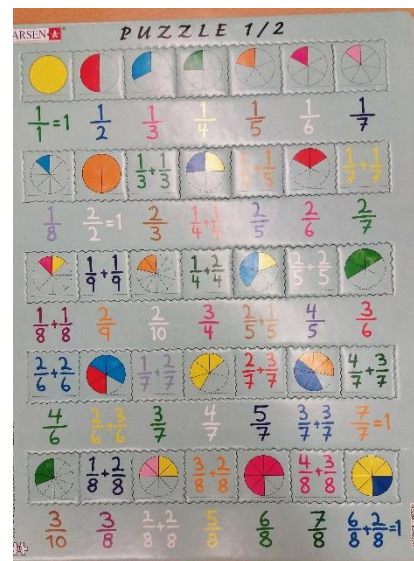 ARSEN PUZZLE 1/2
1/1=1 1/2 1/3 1/4 1/5 1/6 1/7
1/3+1/3 1/5+1/5 1/7+1/7
1/8 2/2=1 2/3 1/4+1/4 2/5 2/6 2/7
1/9+1/9 1/4+2/4 2/5+2/5
1/8+1/8 2/9 2/10 3/4 2/5+1/5 4/5 3/6
2/6+2/6 1/7+2/7 2/7+3/7 4/7+3/7
4/6 2/6+3/6 3/7 4/7 5/7 3/7+3/7 7/7=1
1/8+2/8 3/8+2/8 4/8+3/8
3/10 3/8 2/8+2/8 5/8 6/8 7/8 6/8+2/8=1